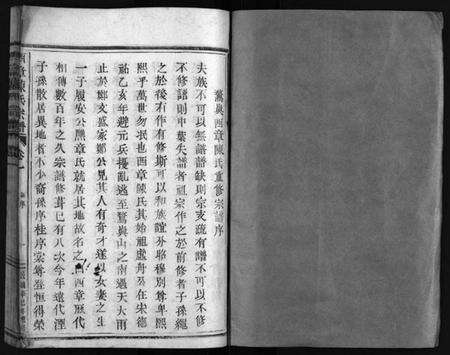 萬與西章陳氏重修宗譜序
夫族不可以無譜譜缺則宗支疏有譜不可以不修
不修譜則中葉失譜者祖宗作之於前修者子孫繩
之於後有作有修斯可以和族誼外昭穆別尊卑熙
熙乎萬世勿泯也西章陳氏其始祖處舟公在宋德
祐乙亥年避元兵擾亂逃至鷲與山之南遇天大雨
止於鄉文盛家鄉公見其人有奇才遂以女妻之生
一子履安公鳳章氏就居其地故名之曰西章歷代
相傳數百年之久宗譜修葺已有八次今年遠代湮
子孫散居異地者小小裔孫序桂序棠尊登恒得榮
卷一
序
一